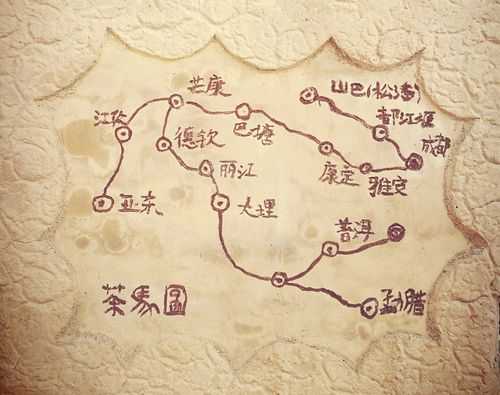 芒康
山巴(松潘)
江孜
巴塘
都江堰
德钦
成都
丽江
康定
雅安
亚东
大理
普洱
茶馬圖
勐腊